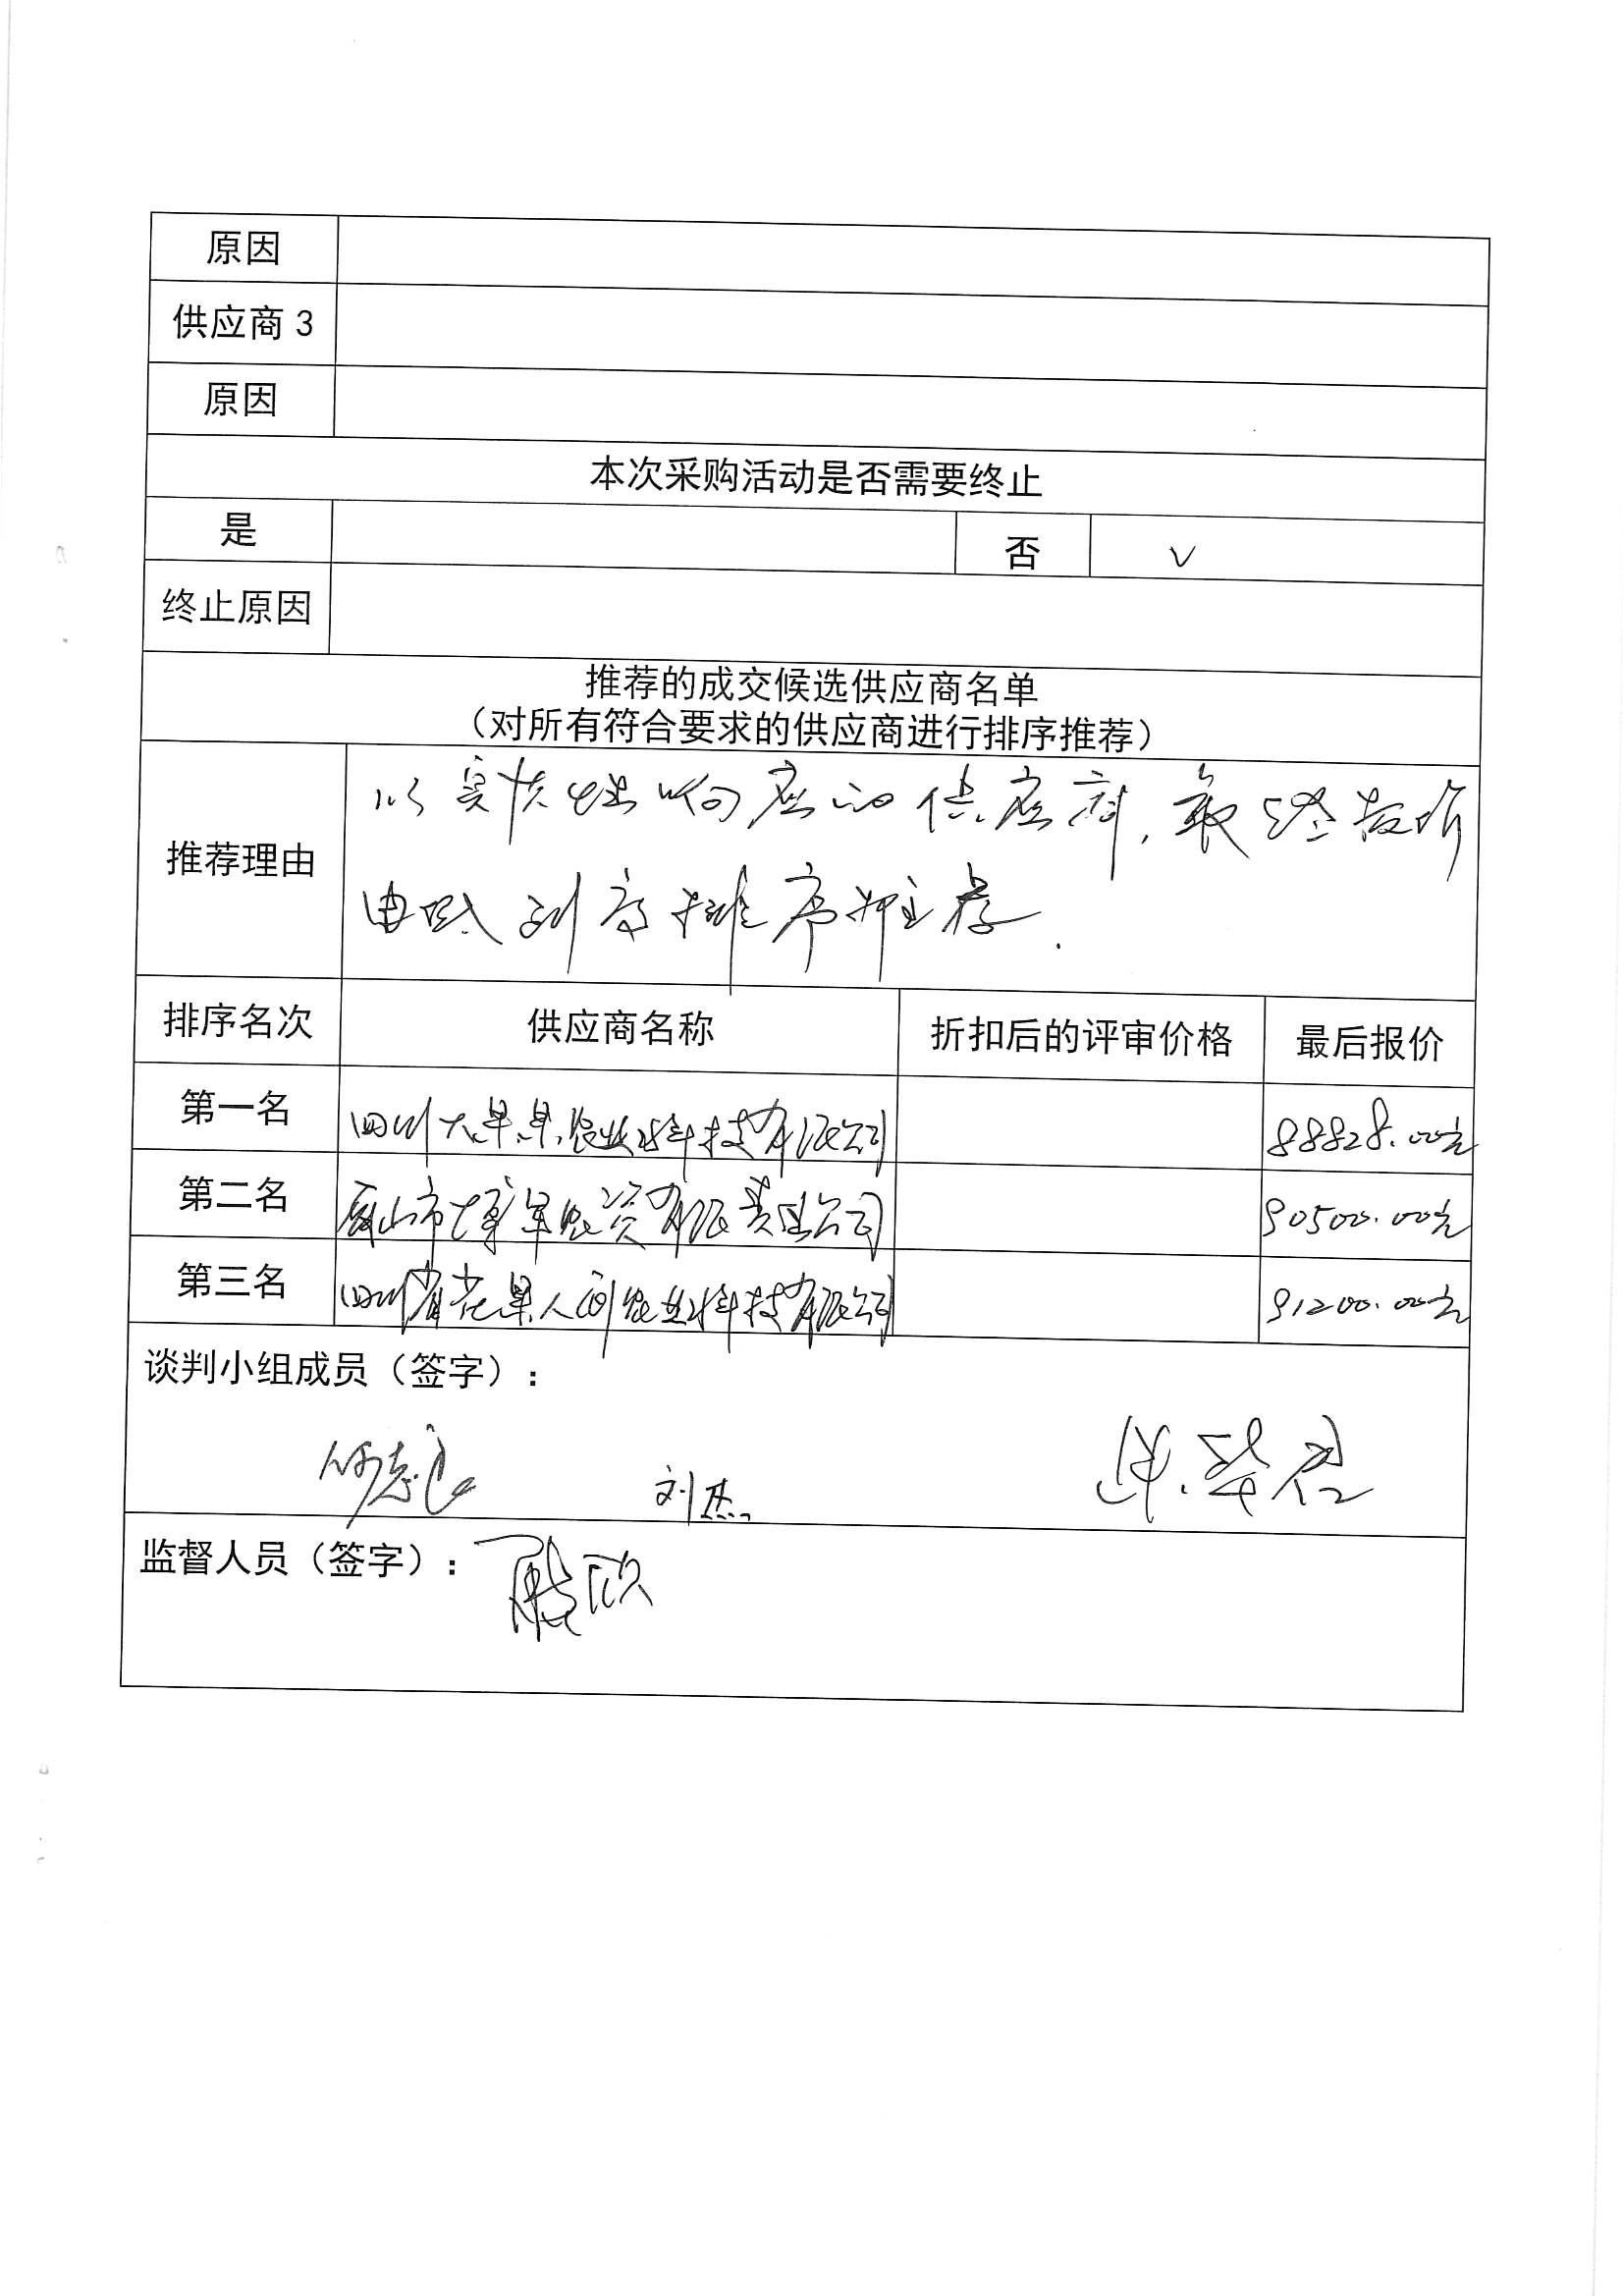 原因
供应商3
原因
本次采购活动是否需要终止
是 否 √
终止原因
推荐的成交候选供应商名单
（对所有符合要求的供应商进行排序推荐）
推荐理由
以实质性响应的供应商，最终报价
由低到高排序推荐.
排序名次 供应商名称 折扣后的评审价格 最后报价
第一名 四川大果果农业科技有限公司 88828.00元
第二名 眉山市 农资有限责任公司 90500.00元
第三名 四川省花果人间农业科技有限公司 91200.00元
谈判小组成员（签字）：
何志良 刘杰
监督人员（签字）：